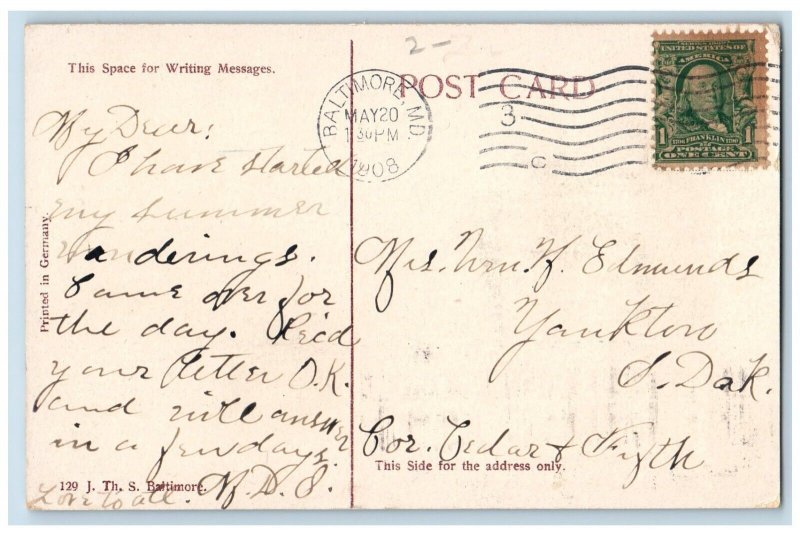 This Space for Writing Messages.
My Dear:
I have started
my summer
wanderings.
Came over for
the day. Rec'd
your letter O.K.
and will answer
in a few days.
Love to all. M.D.S.
Printed in Germany.
129 J. Th. S. Baltimore.
2-
POST CARD
BALTIMORE, MD.
MAY 20
1 30 PM
1908
3
C
UNITED STATES OF
AMERICA
1706 FRANKLIN 1790
1 POSTAGE
ONE CENT
Mrs. Wm. H. Edmunds
Yankton
S. Dak.
Cor. Cedar & Fifth
This Side for the address only.